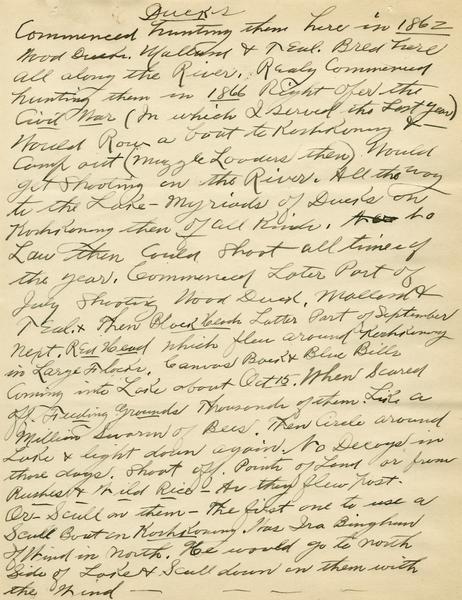 Ducks
Commenced hunting them here in 1862
Wood Duck. Mallard & Teal. Bred here
all along the River. Realy Commenced
hunting them in 1866 Right after the
Civil War (In which I served the Last year)
Would Row a boat to Koshkonong &
Camp out (Muzzle Loaders then) Would
get Shooting on the River. All the way
to the Lake - Myriads of Ducks on
Koshkonong then of all kinds. No
Law then Could Shoot all times of
the year. Commenced Later Part of
July Shooting Wood Duck, Mallard &
Teal. & Then Black Heads Latter Part of September
Next. Red Head which flew around Koshkonong
in Large Flocks. Canvas Back & Blue Bills
Coming into Lake about Oct 15. When Scared
off Feeding Grounds Thousands of them Like a
Million Swarm of Bees. Then Circle around
Lake & light down again. No Decoys in
those days. Shoot off Points of Land or from
Rushes & Wild Rice - As they flew Past.
Or - Scull on them - The first one to use a
Scull Boat on Koshkonong Was Ira Bingham
If Wind in North. He would go to north
Side of Lake & Scull down on them with
the Wind